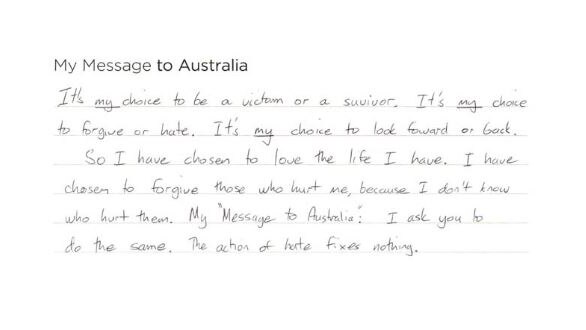 My Message to Australia
It's my choice to be a victom or a suvivor. It's my choice
to forgive or hate. It's my choice to look foward or back.
So I have chosen to love the life I have. I have
chosen to forgive those who hurt me, because I don't know
who hurt them. My "Message to Australia": I ask you to
do the same. The action of hate fixes nothing.